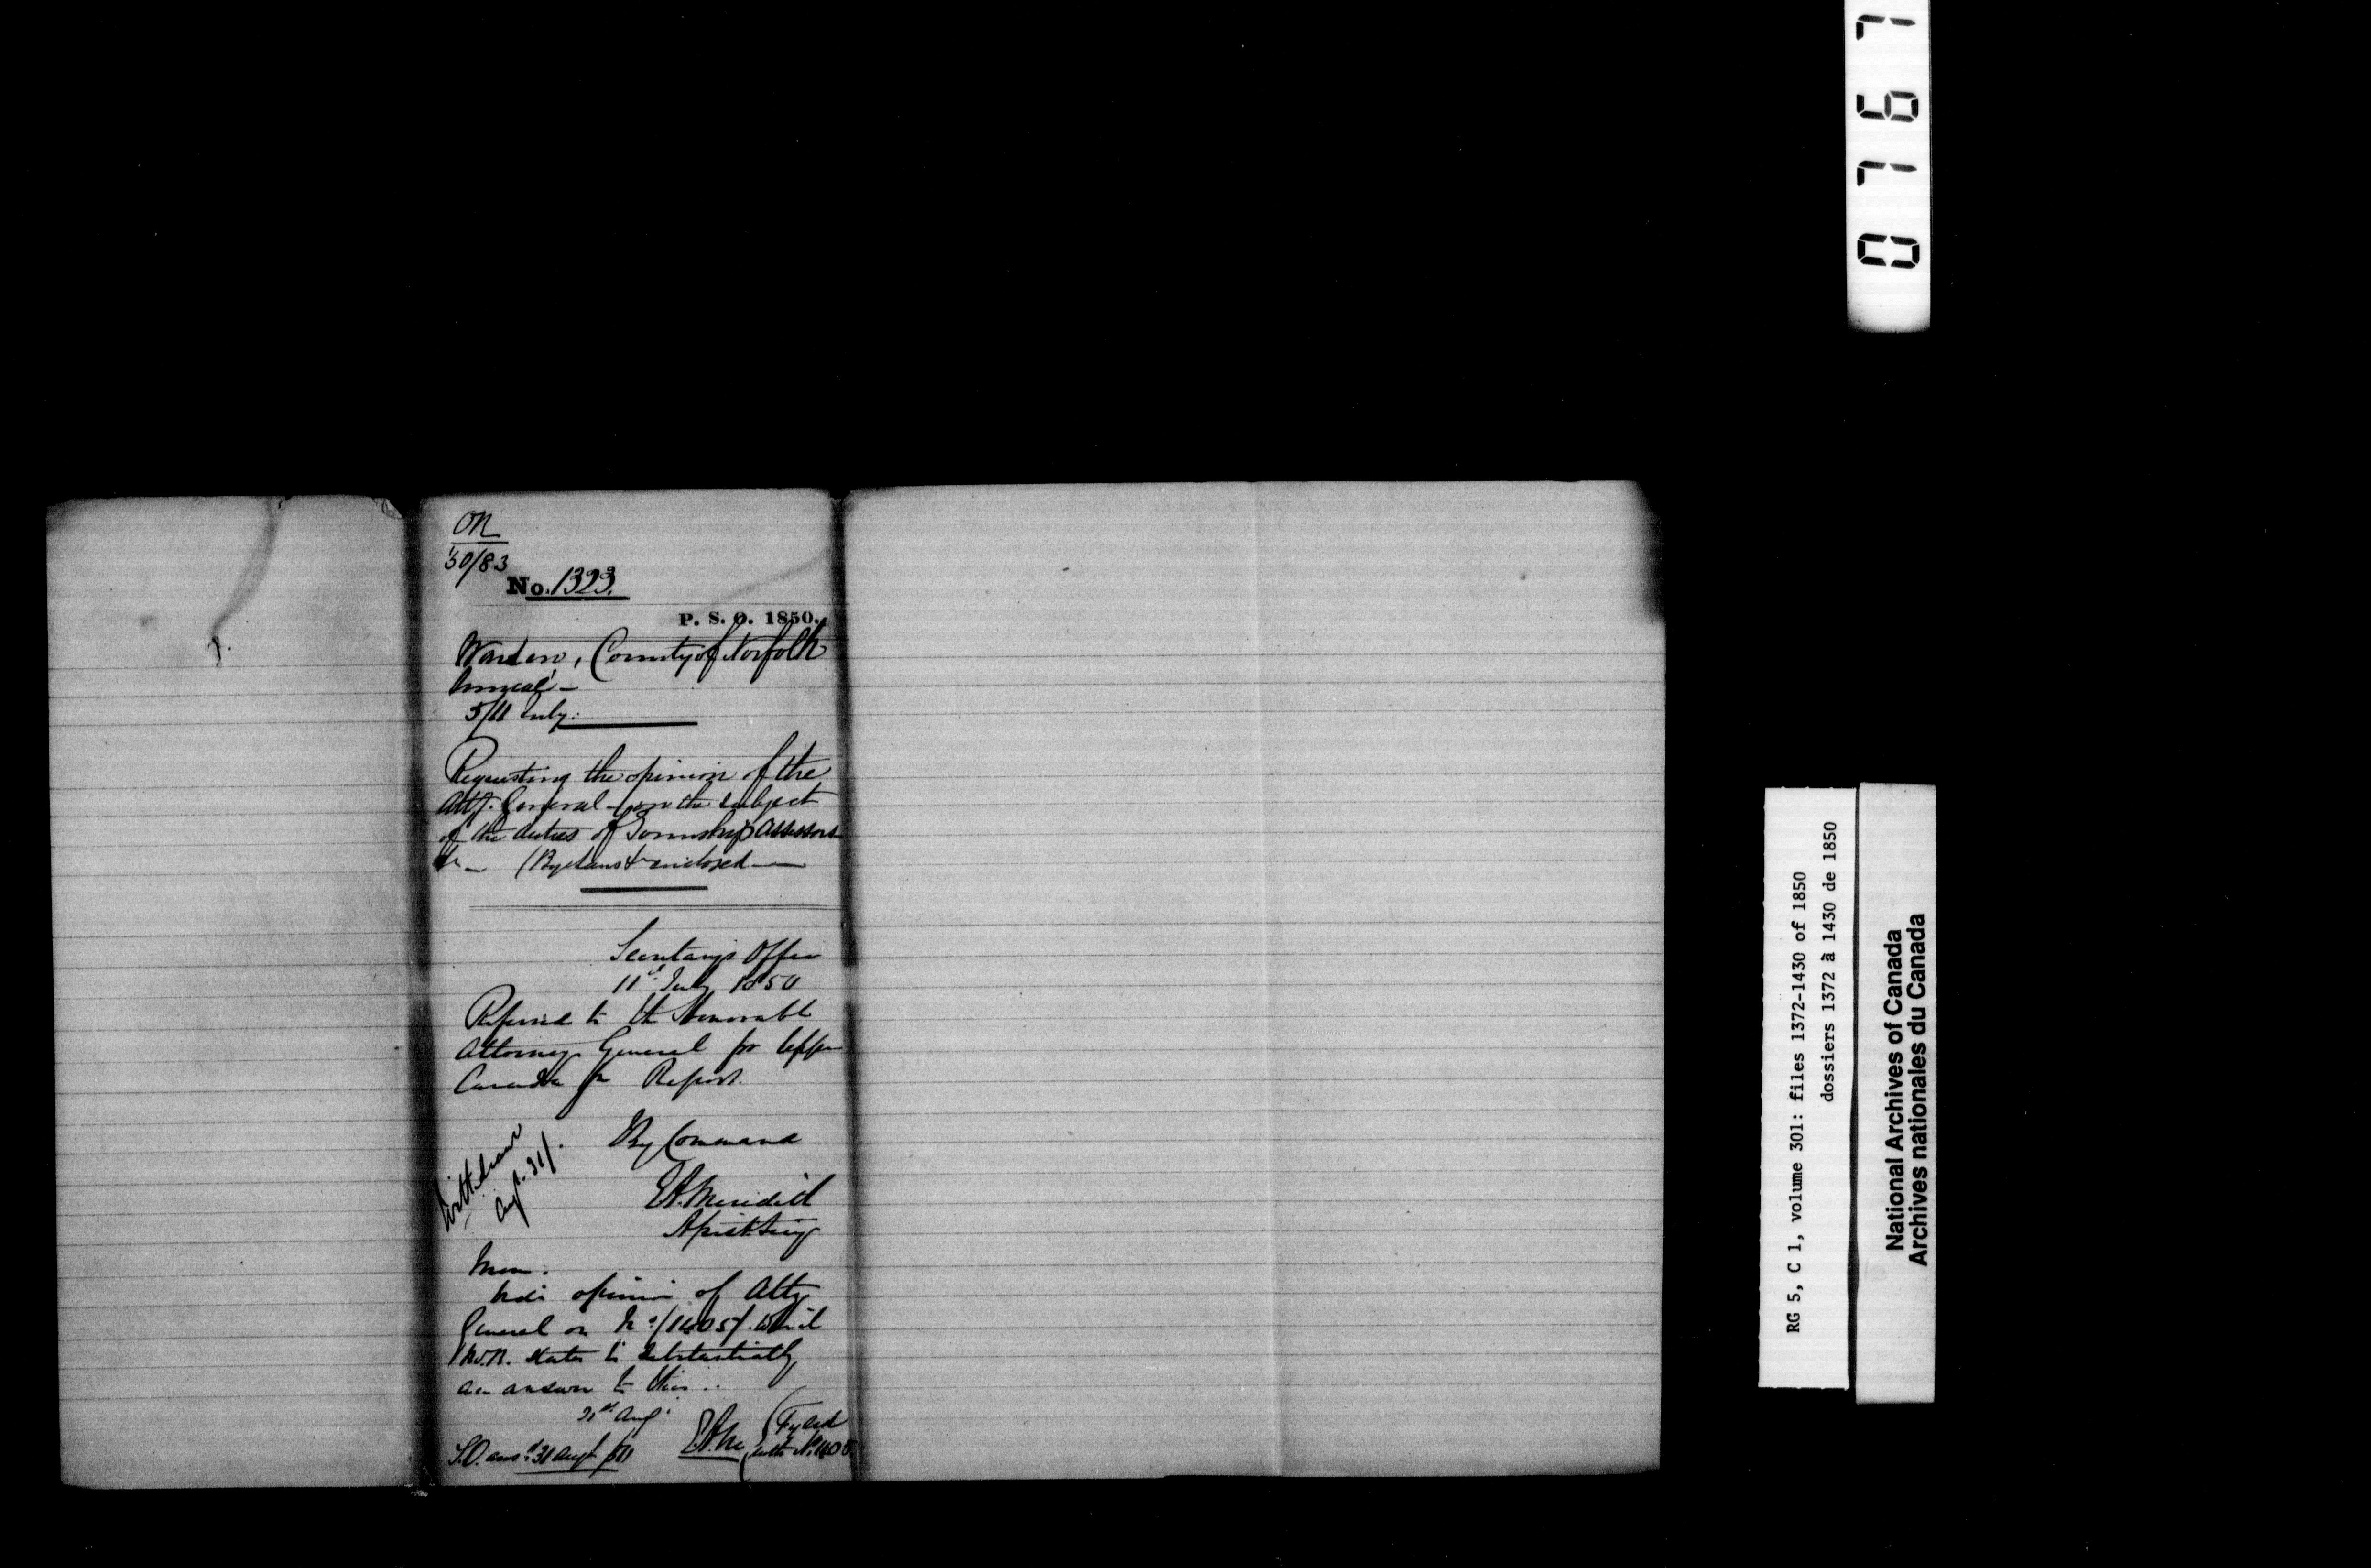 ON
50/83
No. 1393.
P. S. O. 1850.
Warden, County of Norfolk
5/11 July.
Requesting the opinion of the
Atty. General - on the subject
of the duties of Township Assessors
&c - (Byelaws &c enclosed
Secretary's Office
11th July 1850
Referred to the Honorable
Attorney General for Upper
Canada for Report.
By Command
E A. Meredith
Asst Secy
Withdrawn
Augt. 31/.
Mem.
Vide opinion of Atty
General on No /1405/. which
states is substantially
an answer to this..
31st Augt
E.A.M
(Fyled
with No. 1405
S.O. ansd 31 Augt
0767
RG 5, C 1, volume 301: files 1372-1430 of 1850
dossiers 1372 à 1430 de 1850
National Archives of Canada
Archives nationales du Canada